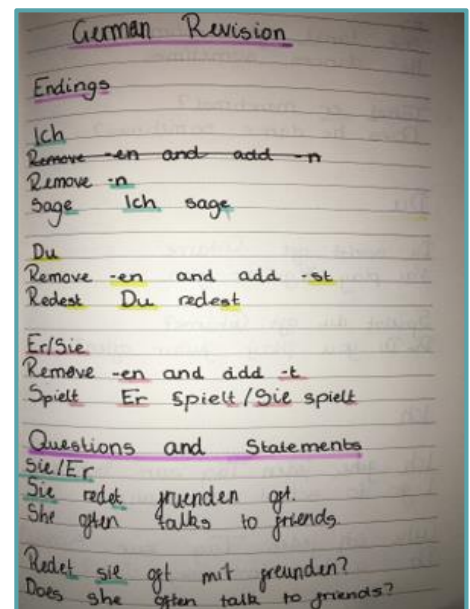 German Revision
Endings
Ich
Remove -en and add -n
Remove -n
Sage Ich sage
Du
Remove -en and add -st
Redest Du redest
Er/Sie
Remove -en and add -t
Spielt Er spielt/Sie spielt
Questions and Statements
Sie/Er
Sie redet fruenden oft.
She often talks to friends.
Redet sie oft mit freunden?
Does she often talk to friends?